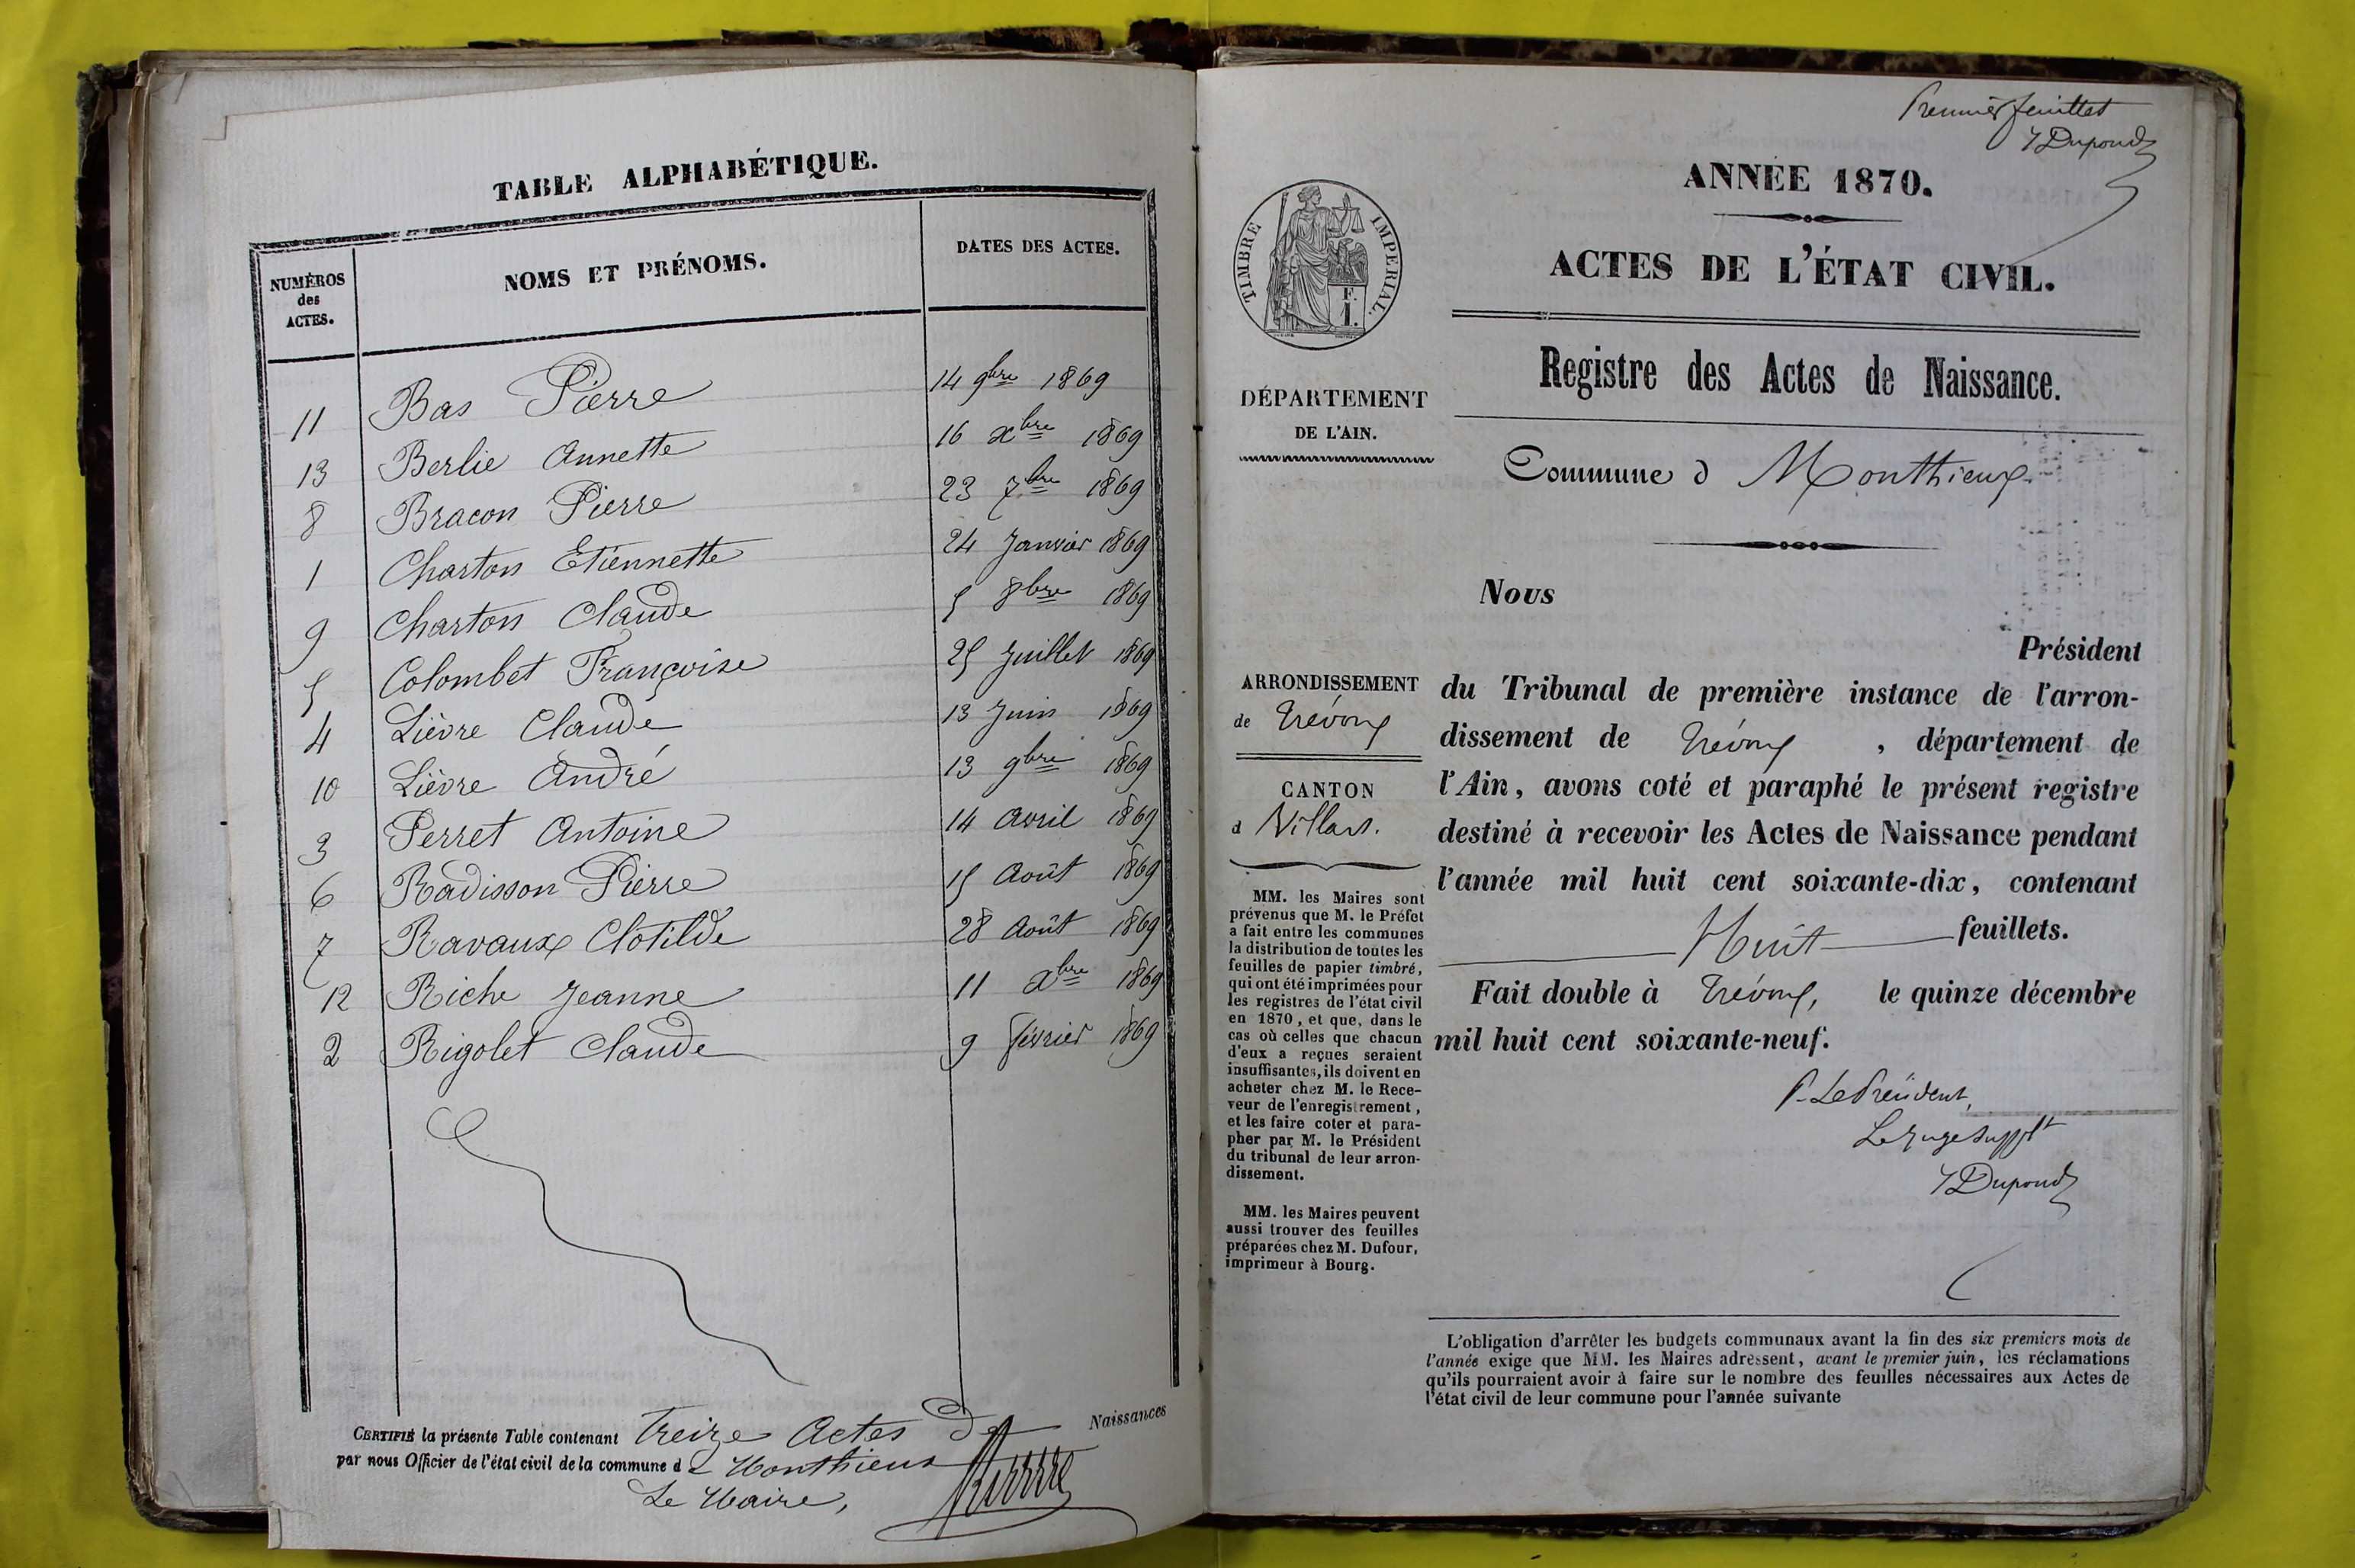 TABLE ALPHABÉTIQUE.
NUMÉROS des ACTES. NOMS ET PRÉNOMS. DATES DES ACTES.
11 Bas Pierre 14 9bre 1869
13 Berlie Annette 16 xbre 1869
8 Bracon Pierre 23 7bre 1869
1 Charton Etiennette 24 Janvier 1869
9 Charton Claude 5 8bre 1869
5 Colombet Françoise 25 Juillet 1869
4 Lièvre Claude 13 Juin 1869
10 Lièvre André 13 9bre 1869
3 Perret Antoine 14 Avril 1869
6 Radisson Pierre 15 Août 1869
7 Ravaux Clotilde 28 Août 1869
12 Riche Jeanne 11 xbre 1869
2 Rigolet Claude 9 février 1869
CERTIFIÉ la présente Table contenant Treize Actes De Naissances
par nous Officier de l'état civil de la commune d e Monthieux
Le Maire,
Premier feuillet
Dupond
ANNÉE 1870.
ACTES DE L'ÉTAT CIVIL.
TIMBRE IMPERIAL.
F.
1.
Registre des Actes de Naissance.
DÉPARTEMENT
DE L'AIN.
Commune d Monthieux.
Nous
Président
du Tribunal de première instance de l'arron-
dissement de Trévoux, département de
l'Ain, avons coté et paraphé le présent registre
destiné à recevoir les Actes de Naissance pendant
l'année mil huit cent soixante-dix, contenant
Huit feuillets.
Fait double à Trévoux, le quinze décembre
mil huit cent soixante-neuf.
P. Le Président,
Le Juge suppt
Dupond
ARRONDISSEMENT
de Trévoux
CANTON
d Villars.
MM. les Maires sont
prévenus que M. le Préfet
a fait entre les communes
la distribution de toutes les
feuilles de papier timbré,
qui ont été imprimées pour
les registres de l'état civil
en 1870, et que, dans le
cas où celles que chacun
d'eux a reçues seraient
insuffisantes, ils doivent en
acheter chez M. le Rece-
veur de l'enregistrement,
et les faire coter et para-
pher par M. le Président
du tribunal de leur arron-
dissement.
MM. les Maires peuvent
aussi trouver des feuilles
préparées chez M. Dufour,
imprimeur à Bourg.
L'obligation d'arrêter les budgets communaux avant la fin des six premiers mois de
l'année exige que MM. les Maires adressent, avant le premier juin, les réclamations
qu'ils pourraient avoir à faire sur le nombre des feuilles nécessaires aux Actes de
l'état civil de leur commune pour l'année suivante